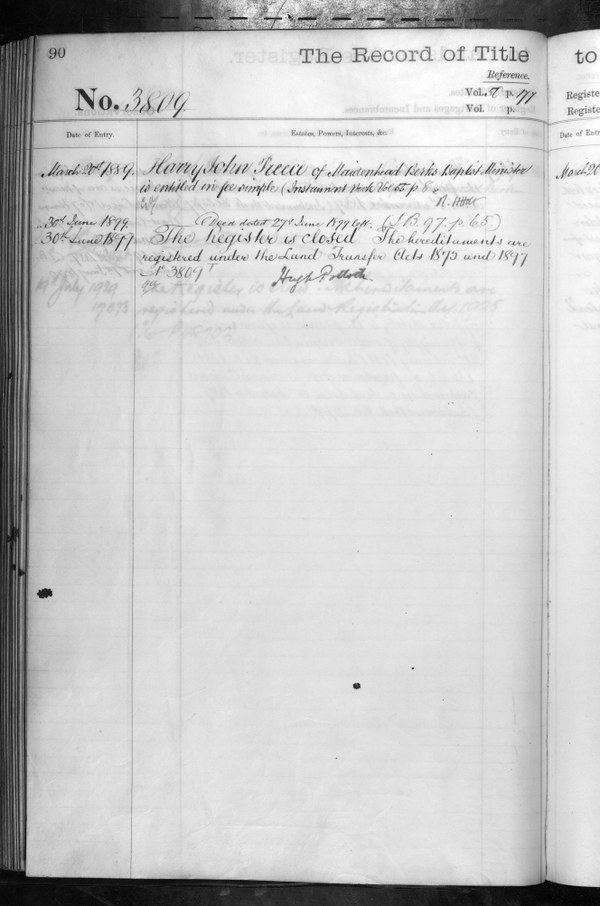 90
The Record of Title
to
Reference.
No. 3809
Vol. p. 177
Vol. p.
Registe
Registe
Date of Entry.
Estates, Powers, Interests, &c
Date of Entr
March 20th 1889. Harry John Piece of Maidenhead Berks Baptist Minister
March 20
is entitled in fee simple (Instrument Book Vol 65 p 8
30th June 1899 (Deed dated 27th June 1899 (I.B. 97. p. 65.)
30th June 1899 The Register is closed The hereditaments are
registered under the Land Transfer Acts 1875 and 1897
No 3809
Hugh Pollock
19th July 1929 The Register is closed. The hereditaments are
17073 registered under the Land Registration Act 1925